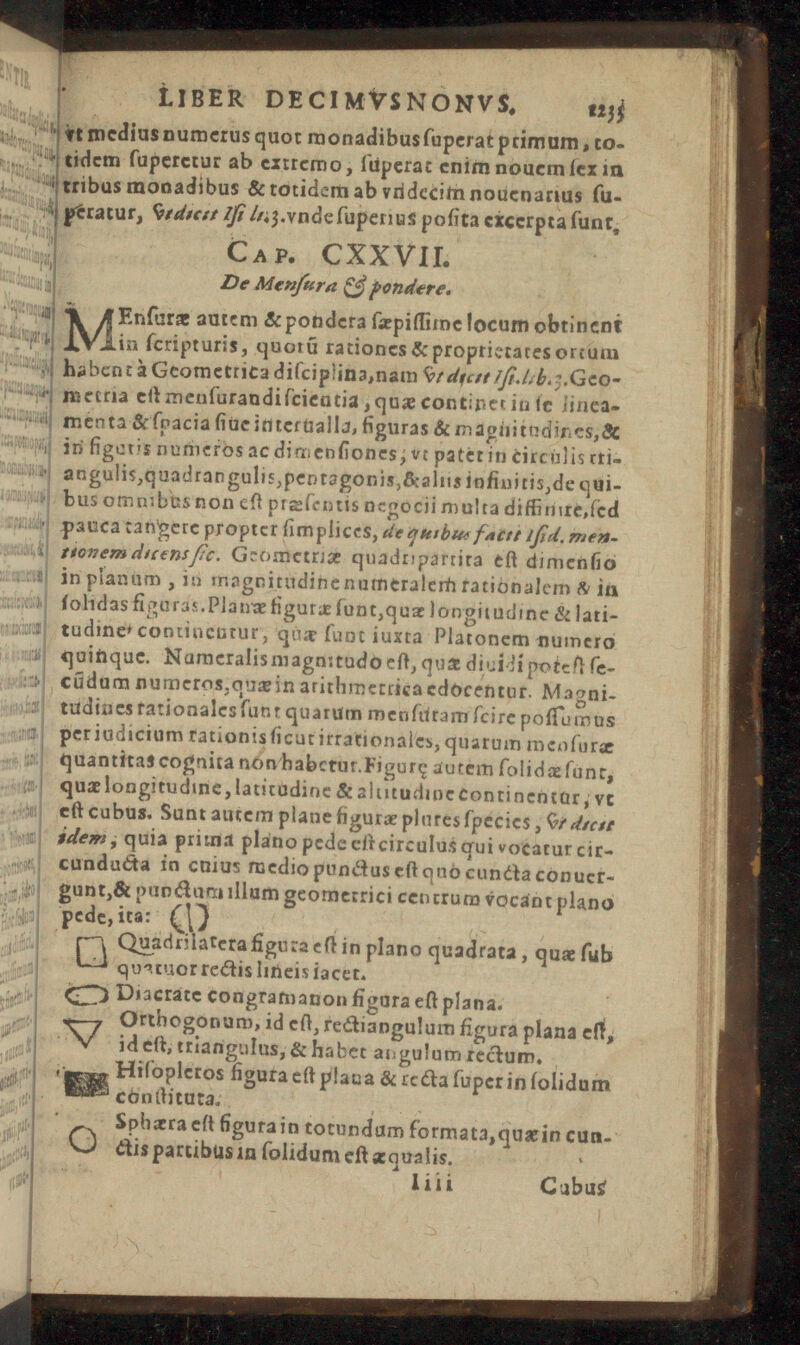 LIBER DECIMVSNONVS,
vt mediusnumerus quot monadibusſuperat primum, to-
tidem ſuperetur ab extremo, ſuperat enim nouem ſex in
tribus monadibus & totidem ab vndecim nouenarius ſu-
peratur, vt dicit Iſi. li. 3. vnde ſuperius poſita excerpta ſunt,
CAP. CXXVII.
De Menſura & pondere.
MEnſuræ autem & pondera ſæpiſſime locum obtinent
in ſcripturis, quorũ rationes & proprietates ortum
habent à Geometrica diſciplina, nam vt dicit Iſi. lib. 3. Geo-
metria eſt menſurandi ſcientia, quæ continet in ſe linea-
menta & ſpacia ſiue interualla, figuras & magnitudines, &
in figuris numeros ac dimenſiones; vt patet in circulis tri-
angulis, quadrangulis, pentagonis, & aliis infinitis, de qui-
bus omnibus non eſt præſentis negocii multa diffinire, ſed
pauca tangere propter ſimplices, de quibus facit Iſid. men-
tionem dicens ſic. Geometriæ quadripartita eſt dimenſio
in planum, in magnitudine numeralem rationalem & in
ſolidas figuras. Planæ figuræ ſunt, quæ longitudine & lati-
tudine continentur, quæ ſunt iuxta Platonem numero
quinque. Numeralis magnitudo eſt, quæ diuidi poteſt ſe-
cũdum numeros, quæ in arithmetrica edocentur. Magni-
tudines rationales ſunt quarum menſuram ſcire poſſumus
per iudicium rationis ſicut irrationales, quarum menſuræ
quantitas cognita non habetur. Figure autem ſolidæ ſunt,
quæ longitudine, latitudine & altitudine continentur, vt
eſt cubus. Sunt autem plane figuræ plures ſpecies, vt dicit
idem; quia prima plano pede eſt circulus qui vocatur cir-
cunducta in cuius medio punctus eſt quò cuncta conuer-
gunt, & punctum illum geometrici centrum vocant plano
pede, ita:
Quadrilatera figura eſt in plano quadrata, quæ ſub
quatuor rectis lineis iacet.
Diacrate congramanon figura eſt plana.
Orthogonum, id eſt, rectiangulum figura plana eſt,
id eſt, triangulus, & habet angulum rectum.
Hiſopleros figura eſt plana & recta ſuper in ſolidum
conſtituta.
Sphæra eſt figura in rotundum formata, quæ in cun-
ctis partibus in ſolidum eſt æqualis.
Iiii Cubus